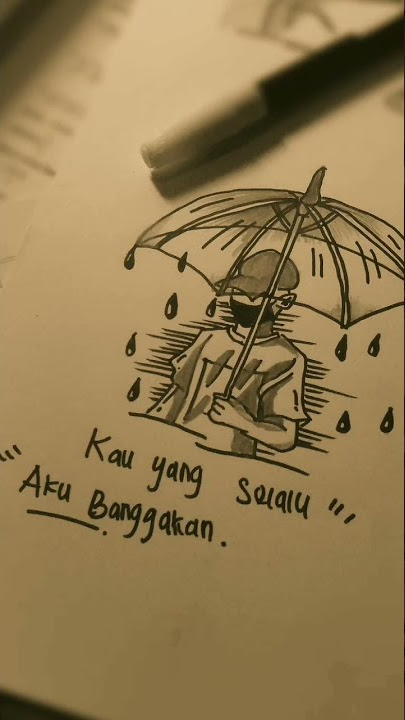 " Kau yang Selalu "
Aku Banggakan.